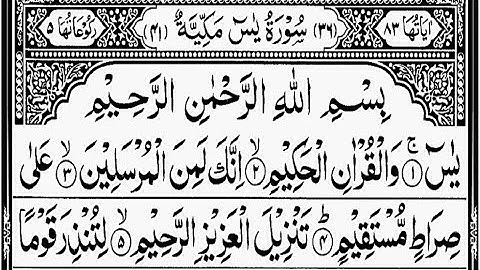 اٰیَاتُهَا ۸۳ (۳۶) سُوْرَةُ یٰسٓ مَكِّیَّةٌ (۴۱) رُكُوْعَاتُهَا ۵
بِسْمِ اللّٰهِ الرَّحْمٰنِ الرَّحِیْمِ
یٰسٓ ۚ‏﴿۱﴾ وَالْقُرْاٰنِ الْحَكِیْمِ ۙ‏﴿۲﴾ اِنَّكَ لَمِنَ الْمُرْسَلِیْنَ ۙ‏﴿۳﴾ عَلٰی
صِرَاطٍ مُّسْتَقِیْمٍ ؕ‏﴿۴﴾ تَنْزِیْلَ الْعَزِیْزِ الرَّحِیْمِ ۙ‏﴿۵﴾ لِتُنْذِرَ قَوْمًا